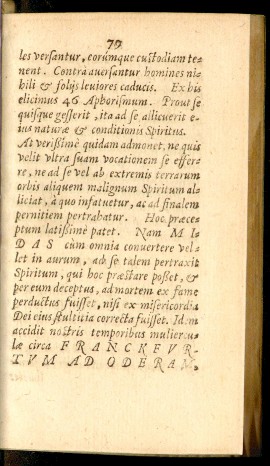 79
les versantur, eorumque custodiam te-
nent. Contrà aversantur homines ni-
hili & folijs leviores caducis. Ex his
elicimus 46 Aphorismum. Prout se
quisque gesserit, ita ad se allicuerit e-
ius naturæ & conditionis Spiritus.
At verissimè quidam admonet, ne quis
velit vltra suam vocationem se effer-
re, ne ad se vel ab extremis terrarum
orbis aliquem malignum Spiritum al-
liciat, à quo infatuetur, ac ad finalem
pernitiem pertrahatur. Hoc præce-
ptum latissimè patet. Nam MI-
DAS cùm omnia convertere vel-
let in aurum, ad se talem pertraxit
Spiritum, qui hoc præstare posset, &
per eum deceptus, ad mortem ex fame
perductus fuisset, nisi ex misericordia
Dei eius stultitia correcta fuisset. Idem
accidit nostris temporibus muliercu-
læ circa FRANCKFVR-
TVM AD ODERAM.